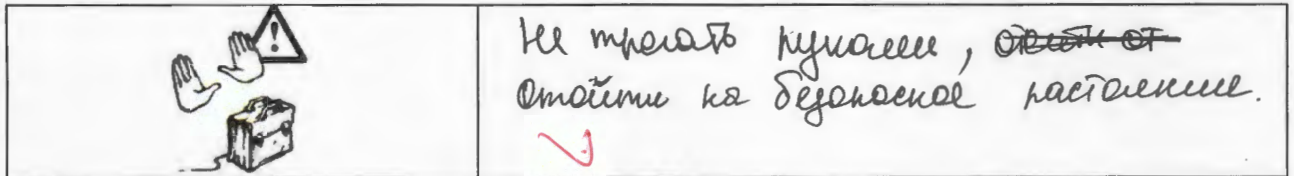 Не трогать руками, отойти от
Отойти на безопасное растояние.